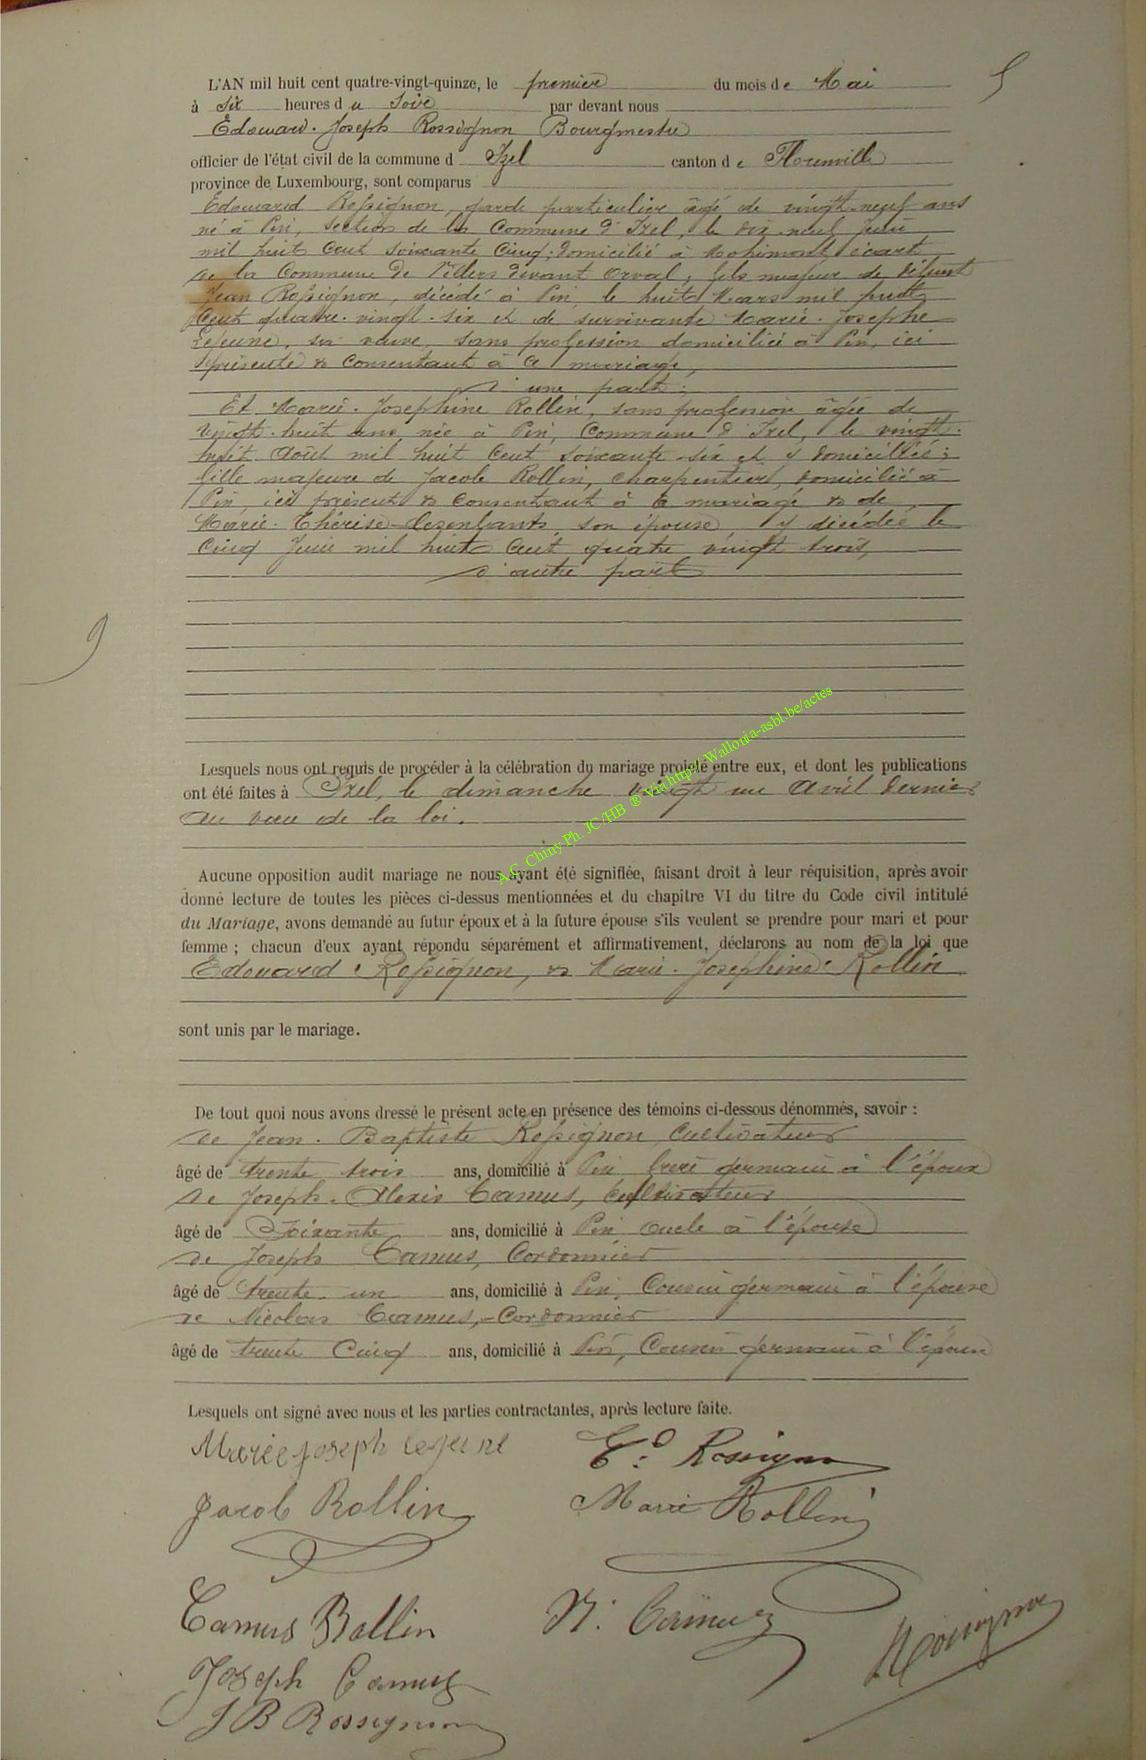 5
L'AN mil huit cent quatre-vingt-quinze, le premier du mois de Mai
à six heures du Soir par devant nous
Edouard. Joseph Rossignon Bourgmestre
officier de l'état civil de la commune d Izel canton de Florenville
province de Luxembourg, sont comparus
Edouard Rossignon, garde particulier âgé de vingt-neuf ans
né à Pin, section de la Commune d'Izel, le dix-neuf Juin
mil huit Cent soixante Cinq; domicilié à Mohimont écart
de la Commune de Villers devant Orval; fils majeur de défunt
Jean Rossignon, décédé à Pin, le huit Mars mil huit
Cent quatre-vingt-six et de survivante Marie-Josephe
Lejeune, sa veuve, sans profession domiciliée à Pin, ici
présente & Consentant à ce mariage,
d'une part;
Et Marie-Josephine Rollin, sans profession âgée de
vingt-huit ans née à Pin, Commune d'Izel, le vingt-
Août mil huit Cent soixante-six et y domiciliée;
fille majeure de Jacob Rollin, Charpentier, domicilié à
Pin, ici présent & Consentant à ce mariage & de
Marie-Thérèse Lesenfants, son épouse y décédée le
Cinq Juin mil huit Cent quatre vingt trois,
d'autre part
9
Lesquels nous ont requis de procéder à la célébration du mariage projeté entre eux, et dont les publications
ont été faites à Izel, le dimanche vingt un Avril dernier
au vœu de la loi.
A.C. Chiny Ph. JC/HB ® Via https://Wallonia-asbl.be/actes
Aucune opposition audit mariage ne nous ayant été signifiée, faisant droit à leur réquisition, après avoir
donné lecture de toutes les pièces ci-dessus mentionnées et du chapitre VI du titre du Code civil intitulé
du Mariage, avons demandé au futur époux et à la future épouse s'ils veulent se prendre pour mari et pour
femme ; chacun d'eux ayant répondu séparément et affirmativement, déclarons au nom de la loi que
Edouard Rossignon, & Marie-Josephine Rollin
sont unis par le mariage.
De tout quoi nous avons dressé le présent acte en présence des témoins ci-dessous dénommés, savoir :
de Jean-Baptiste Rossignon, Cultivateur
âgé de trente trois ans, domicilié à Pin frère germain à l'époux
de Joseph-Alexis Camus, Cultivateur
âgé de Soixante ans, domicilié à Pin oncle à l'épouse
de Joseph Camus, Cordonnier
âgé de trente-un ans, domicilié à Pin, Cousin germain à l'épouse
de Nicolas Camus, Cordonnier
âgé de trente Cinq ans, domicilié à Pin, Cousin germain à l'épouse
Lesquels ont signé avec nous et les parties contractantes, après lecture faite.
Marie Joseph Lejeune Ed. Rossignon
Jacob Rollin Marie Rollin
Camus Rollin N. Camus Rossignon
Joseph Camus
J B Rossignon